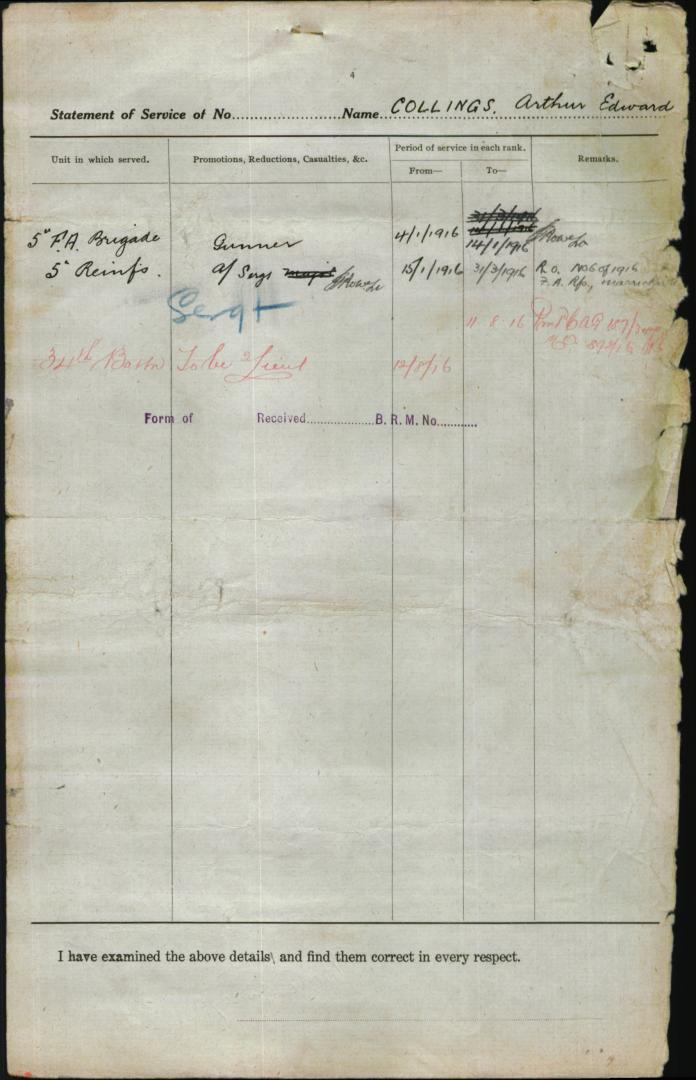 4
Statement of Service of No.................Name COLLINGS. Arthur Edward
Unit in which served. Promotions, Reductions, Casualties, &c. Period of service in each rank. Remarks.
From— To—
5" F.A. Brigade Gunner 4/1/1916 14/1/1916
5" Reinfs. a/ Sergt 15/1/1916 31/3/1916 R.O. No 6 of 1916
F.A. Rfs,
Sergt
11 8 16
34th Battn To be 2 Lieut 12/8/16
Form of Received...................B. R. M. No...........
I have examined the above details and find them correct in every respect.